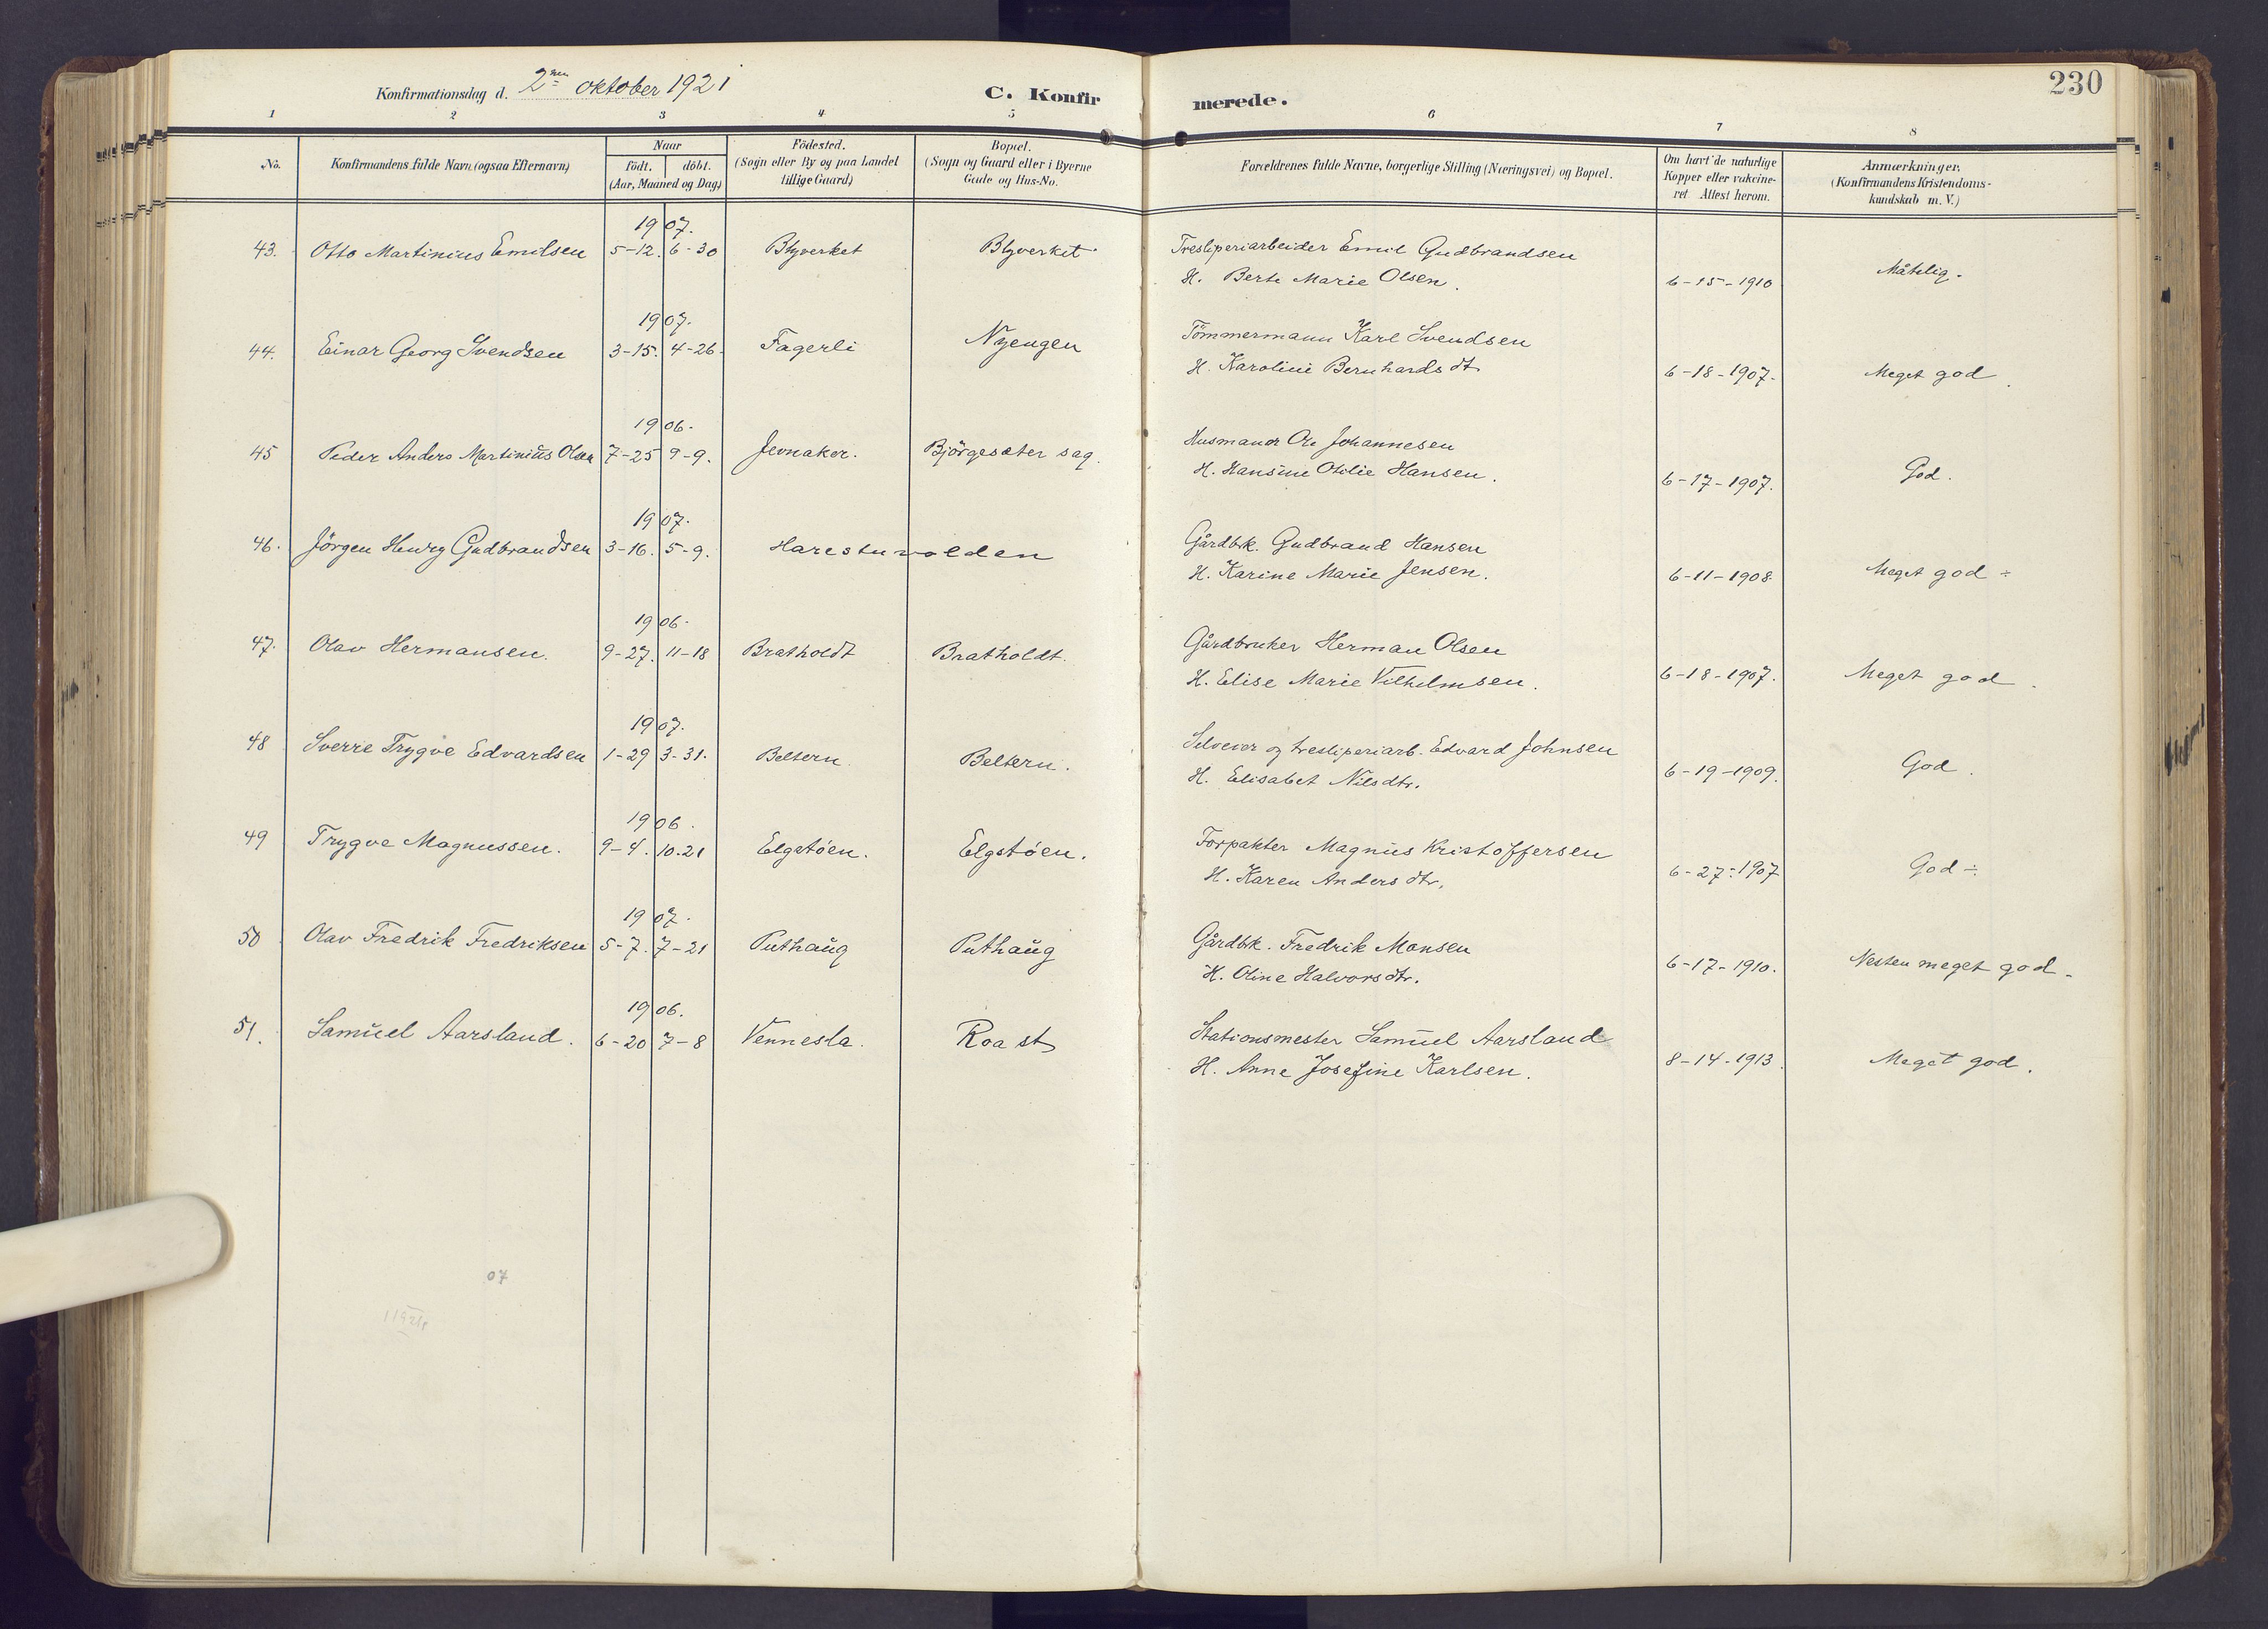 Konfirmationsdag d. 2nen oktober 1921
C. Konfirmerede.
230
1 2 3 4 5 6 7 8
No.
Konfirmandens fulde Navn (ogsaa Efternavn)
Naar
födt. döbt.
(Aar, Maaned og Dag)
Födested.
(Sogn eller By og paa Landet
tillige Gaard)
Bopæl.
(Sogn og Gaard eller i Byerne
Gade og Hus-No.
Forældrenes fulde Navne, borgerlige Stilling (Næringsvei) og Bopæl.
Om havt de naturlige
Kopper eller vakcine-
ret Attest herom.
Anmærkninger.
(Konfirmandens Kristendoms-
kundskab m. V.)
1907.
43. Otto Martinius Emilsen 5-12. 6-30 Blyverket Blyverket. Tresliperiarbeider Emil Gudbrandsen
H. Berte Marie Olsen. 6-15-1910 Måtelig.
1907.
44. Einar Georg Svendsen 3-15. 4-26. Fagerli Nyengen Tömmermann Karl Svendsen
H. Karoline Bernhardsdt. 6-18-1907. Meget god.
1906.
45 Peder Anders Martinius Olsen 7-25 9-9. Jevnaker. Björgesæter sag. Husmann Ole Johannesen
H. Hansine Otilie Hansen. 6-17-1907. God.
1907.
46. Jörgen Henry Gudbrandsen 3-16. 5-9. Harestuvolden Gårdbk. Gudbrand Hansen
H. Karine Marie Jensen. 6-11-1908. Meget god ÷
1906.
47. Olav Hermansen. 9-27. 11-18 Bratholdt Bratholdt. Gårdbruker Herman Olsen
H. Elise Marie Vilhelmsen. 6-18-1907. Meget god.
1907.
48 Sverre Trygve Edvardsen 1-29 3-31. Beltern Beltern. Selveier og tresliperiarb. Edvard Johnsen
H. Elisabet Nilsdtr. 6-19-1909. God.
1906.
49 Trygve Magnussen. 9-4. 10.21 Elgstöen. Elgstöen. Forpakter Magnus Kristoffersen
H. Karen Andersdtr. 6-27-1907 God ÷
1907.
50 Olav Fredrik Fredriksen 5-7. 7-21 Puthaug Puthaug Gårdbk. Fredrik Monsen
H. Oline Halvorsdtr. 6-17-1910. Nesten meget god.
1906.
51. Samuel Aarsland. 6-20 7-8 Vennesla. Roa st. Stationsmester Samuel Aarsland
H. Anne Josefine Karlsen. 8-14-1913. Meget god.
07